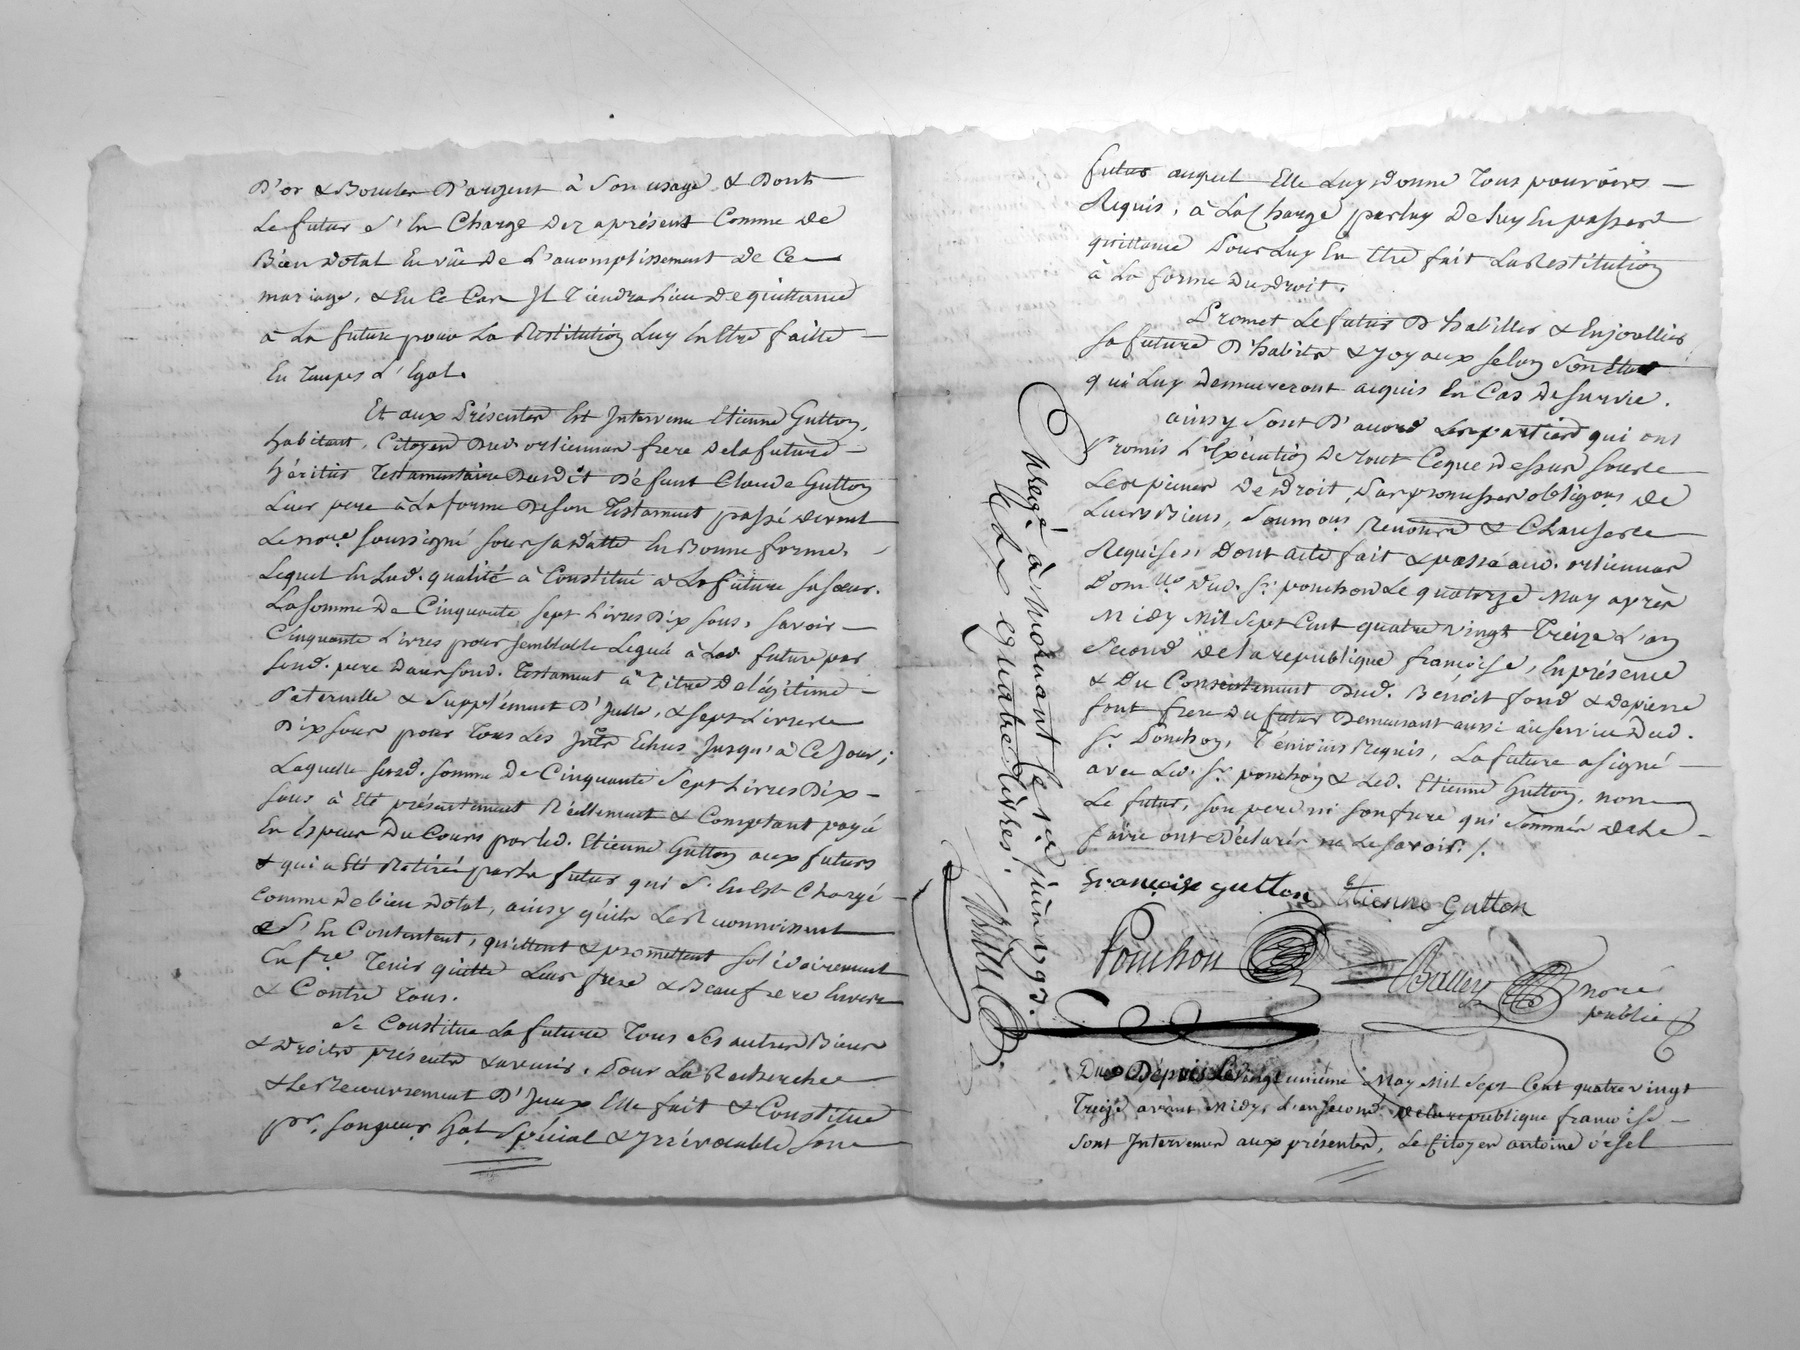 D'or & Boucles D'argent à Son usage & Dont
Le futur S'En Charge Dez aprésent Comme De
Bien Dotal En vûe De L'accomplissement De Ce
mariage, & En Ce Cas Il Tiendra Lieu De quittance
à La future pour La Restitution Luy En Etre faitte
En Temps & Egal.
Et aux Présentes Est Intervenu Etienne Gutton,
habitant, Citoyen Dud. ortiennas frere De la future
héritier Testamentaire Dudit Défunt Claude Gutton
Leur pere à La forme De Son Testament passé devant
Le nore Soussigné Sous Sa Datte En Bonne forme,
Lequel En Lad. qualité à Constitué a La future Sa Sœur.
La Somme De Cinquante Sept Livres Dix Sous, Savoir
Cinquante Livres pour Semblable Legué à Lad future par
Sond. pere Dans Sond. Testament à Titre De légitime
Paternelle & Supplément D'Jcelle, & Sept Livres
Dix Sous pour Tous Les Jnts Echus Jusqu'à Ce Jour;
Laquelle Susd. Somme De Cinquante Sept Livres Dix
Sous à Eté présentement Réellement & Comptant payé
En Espèces Du Cours par Led. Etienne Gutton aux futurs
& qui a Eté Retirée par Le futur qui S'En Est Chargé
Comme De bien Dotal, ainsy qu'ils Le Reconnoissent
& S'En Contentent, quittent & promettent Solidairement
En fre Tenir quitte Leur frere & Beaufrere Envers
& Contre Tous.
Se Constitue La future Tous Ses autres Biens
& Droits présents & avenir, Pour La Recherche
& Le Recouvrement D'Jceux Elle fait & Constitue
pr. Son Spécial & Irrévocable Son
futur auquel Elle Luy Donne Tous pouvoirs
Requis, à La Charge par Luy De Luy En passer
quittance Pour Luy En Etre fait La Restitution
à La forme Du Droit.
Promet Le futur D'habiller & Enjoallier
Sa future D'habits & Joyaux Selon Son Etat
qui Luy Demeureront acquis En Cas De Survie.
ainsy Sont D'accord Les parties qui ont
Promis L'Exécution De tout Ce que Dessus Sous Le
Les peines De Droit, Par promesses obligons De
Leurs Biens, Soumons Renonce & Clauses
Requises; Dont acte fait & passé aud. ortiennas
Domlle Dud. Sr. ponchon Le quatorze May après
Midy Mil Sept Cent quatre vingt Treize L'an
Second De la republique françoise, En présence
& Du Consentement Dud. Benoit fond & De pierre
font frere Du futur Demeurant aussi au Service Dud.
Sr. Ponchon, Témoins Requis, La future a Signé
avec Led. Sr. ponchon & Led. Etienne Gutton, non
Le futur, Son pere ni Son frere qui Sommés De Le
faire ont Déclarés ne Le Savoir. /.
françoise gutton Etienne Gutton
Ponchon
nore
public
Du Dépuis Le vingt unième May Mil Sept Cent quatre vingt
Treize avant Midy, L'an Second De la republique françoise
Sont Intervenus aux présentes, Le Citoyen antoine
Enregé à Moirant Le juin 1793.
quatre Livres.